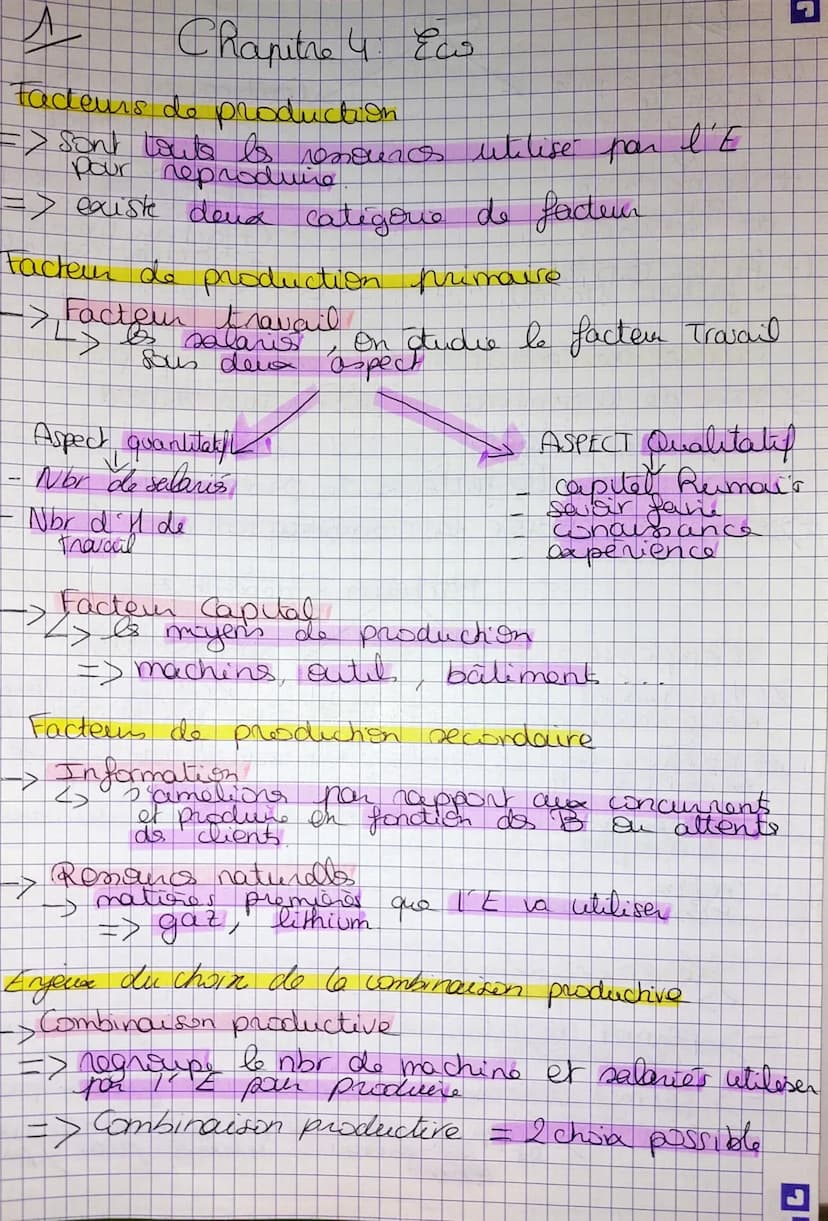 1/
Chapitre 4 : Éco
Facteurs de production
=> sont touts les ressources utilisé par l'E
pour reproduire
=> existe deux catégorie de facteur
Facteur de production primaire
-> Facteur travail
↳ les salariés, on étudie le facteur Travail
sous deux aspect
Aspect quantitatif
- Nbr de salariés
- Nbr d'H de
travail
ASPECT Qualitatif
- capital Humain
- savoir faire
- conaissance
- expérience
-> Facteur Capital
↳ les moyens de production
=> machines, outils, bâtiments ...
Facteurs de production secondaire
-> Information
↳ s'améliorer par rapport aux concurrents
et produire en fonction des B ou attents
des clients
-> Ressources naturelles
-> matières premières que l'E va utiliser
=> gaz, lithium
Enjeux du choix de la combinaison productive
-> Combinaison productive
=> regroupe le nbr de machine et salariés utiliser
par l'E pour produire
=> Combinaison productive = 2 choix possible